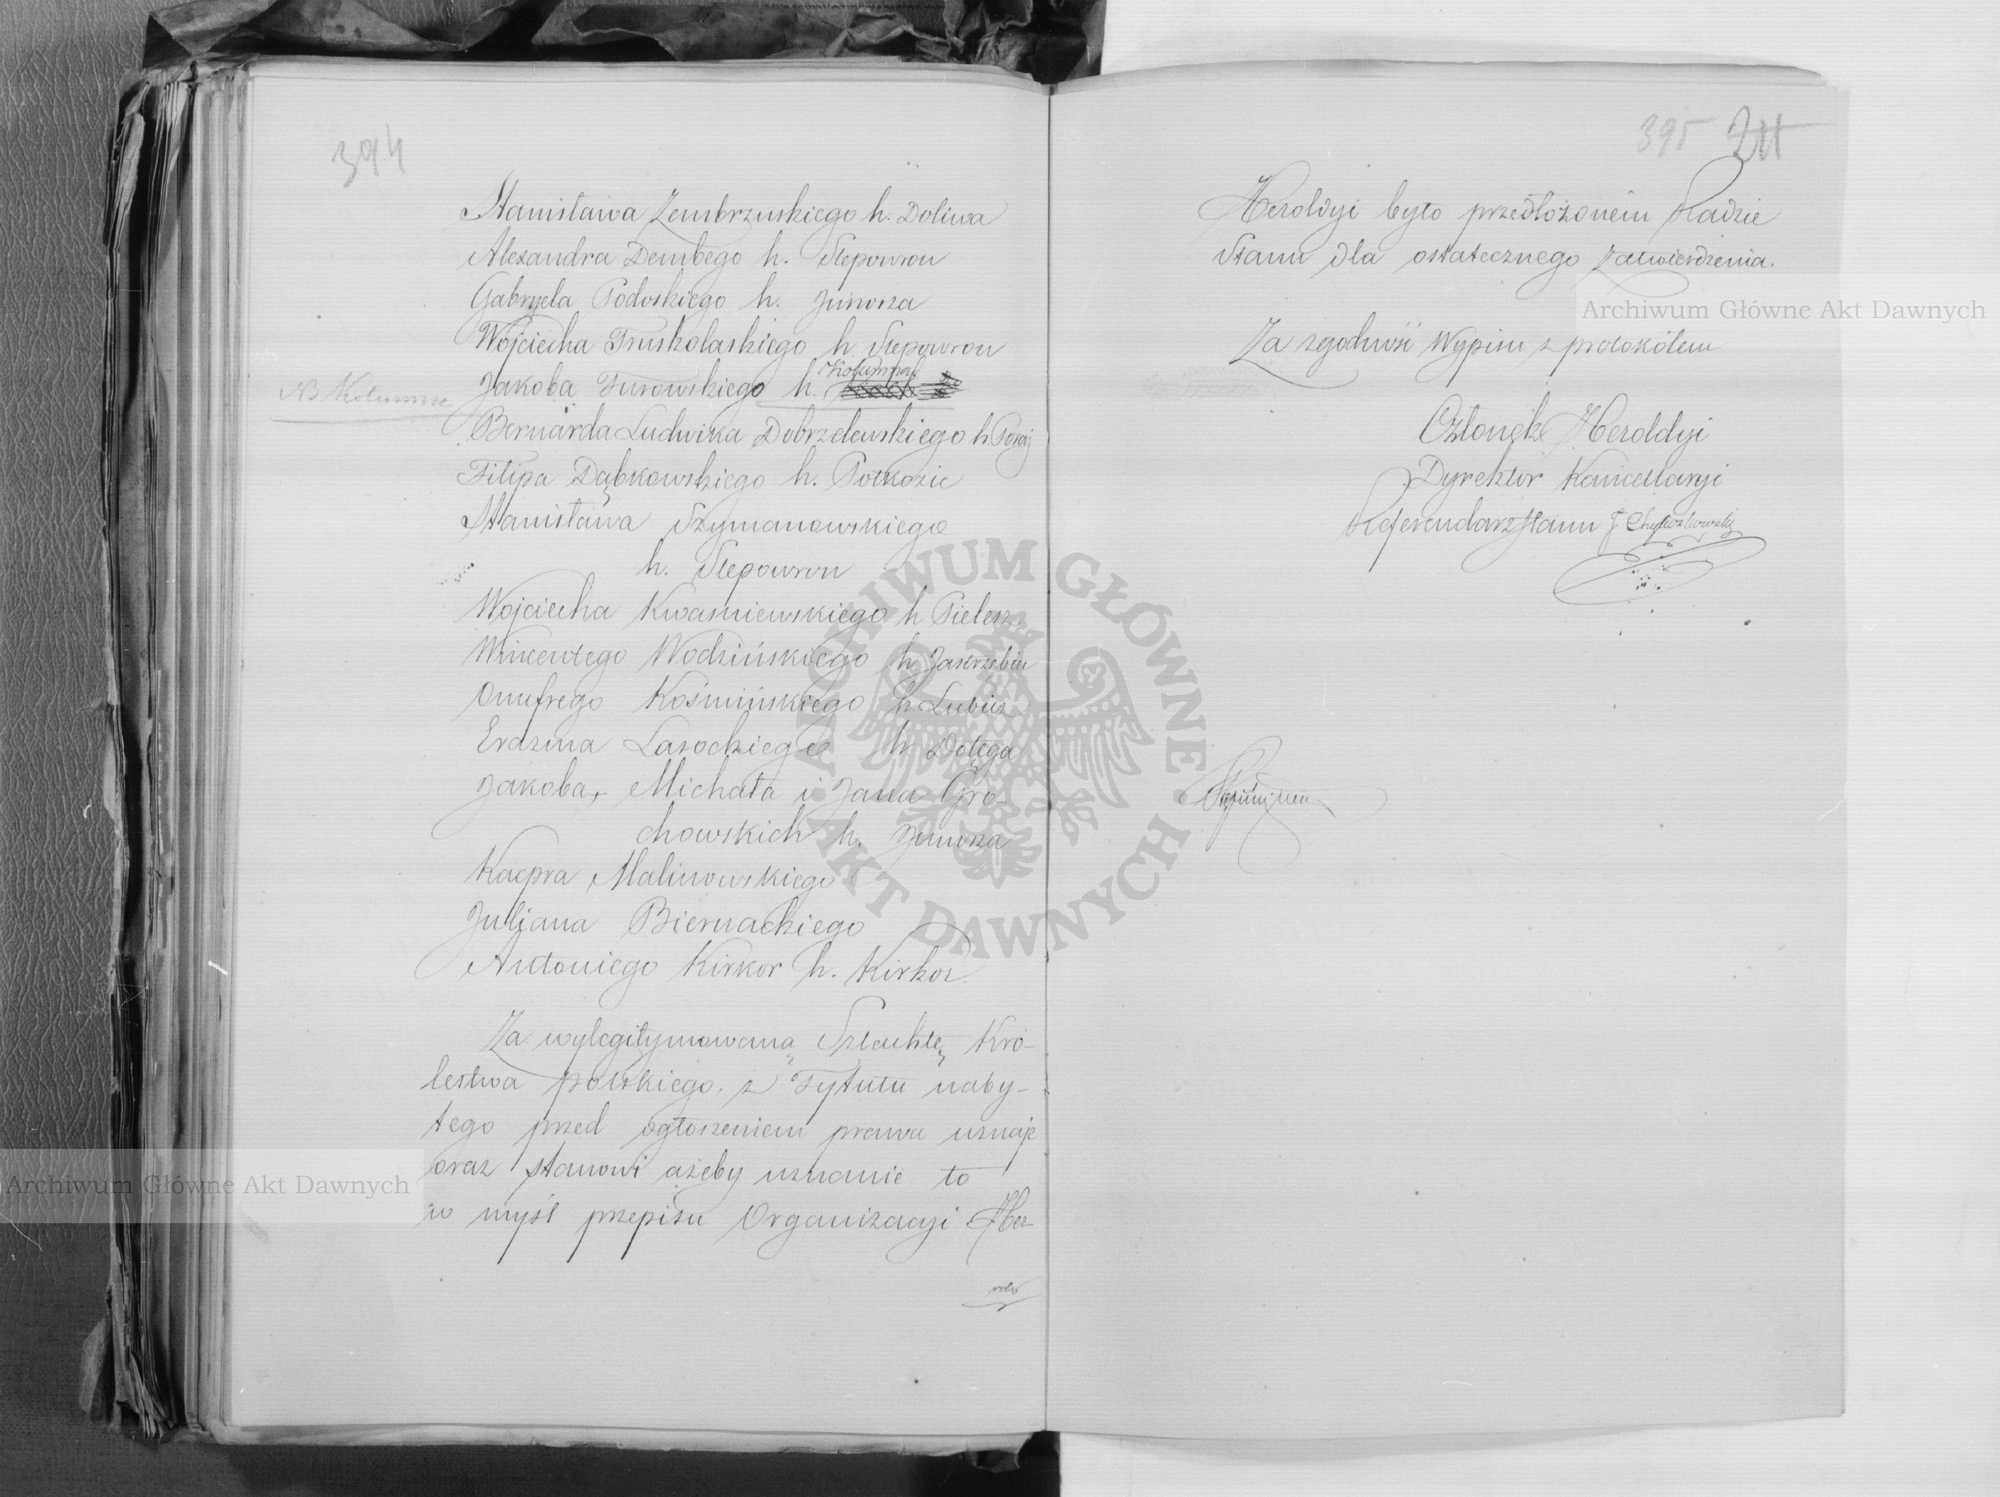 394
Stanisława Zembrzuskiego h. Doliwa
Alexandra Dembego h. Slepowron
Gabryela Podoskiego h. Junosza
Wojciecha Truskolaskiego h Slepowron
NB Kolumna
Jakoba Turowskiego h. Kolumna
Bernarda Ludwika Dobrzelewskiego h Poraj
Filipa Dąbkowskiego h. Połkozic
Stanisława Szymanowskiego
h. Slepowron
Wojciecha Kwasniewskiego h Pielesz
Wincentego Wodzińskiego h Jastrzębiu
Onufrego Kośmińskiego h. Lubicz
Erazma Lasockiego h Dołęga
Jakoba, Michała i Jana Gro-
chowskich h. Junosza
Kacpra Malinowskiego
Juliana Biernackiego
Antoniego Kirkor h. Kirkor
Za wylegitymowaną Szlachtę Kró-
lestwa polskiego, z Tytułu naby-
tego przed ogłoszeniem prawa uznaje
oraz stanowi ażeby uznanie to
w myśl przepisu Organizacyi Her-
395 211
Heroldyi było przedłożonem Radzie
Stanu dla ostatecznego zatwierdzenia.
Za zgodność Wypisu z protokółem
Członek Heroldyi
Dyrektor Kancellaryi
Referendarz Stanu
Archiwum Główne Akt Dawnych
Archiwum Główne Akt Dawnych
ARCHIWUM GŁÓWNE AKT DAWNYCH